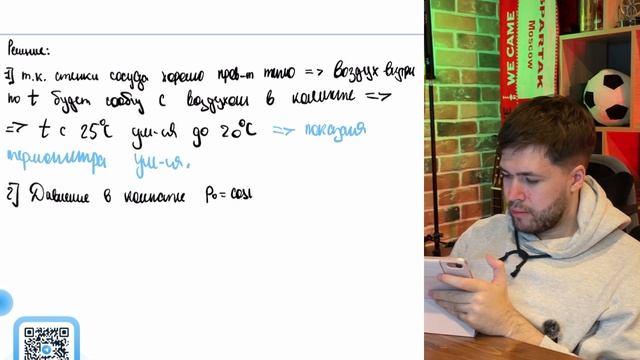 Решение:
1) т.к. стенки сосуда хорошо пров-т тепло => воздух внутри
по t будет сообщ с воздухом в комнате =>
=> t с 25°C ум-ся до 20°C => показания
термометра ум-ся.
2) Давление в комнате P₀ = cos
WE CAME
SPARTAK
Moscow